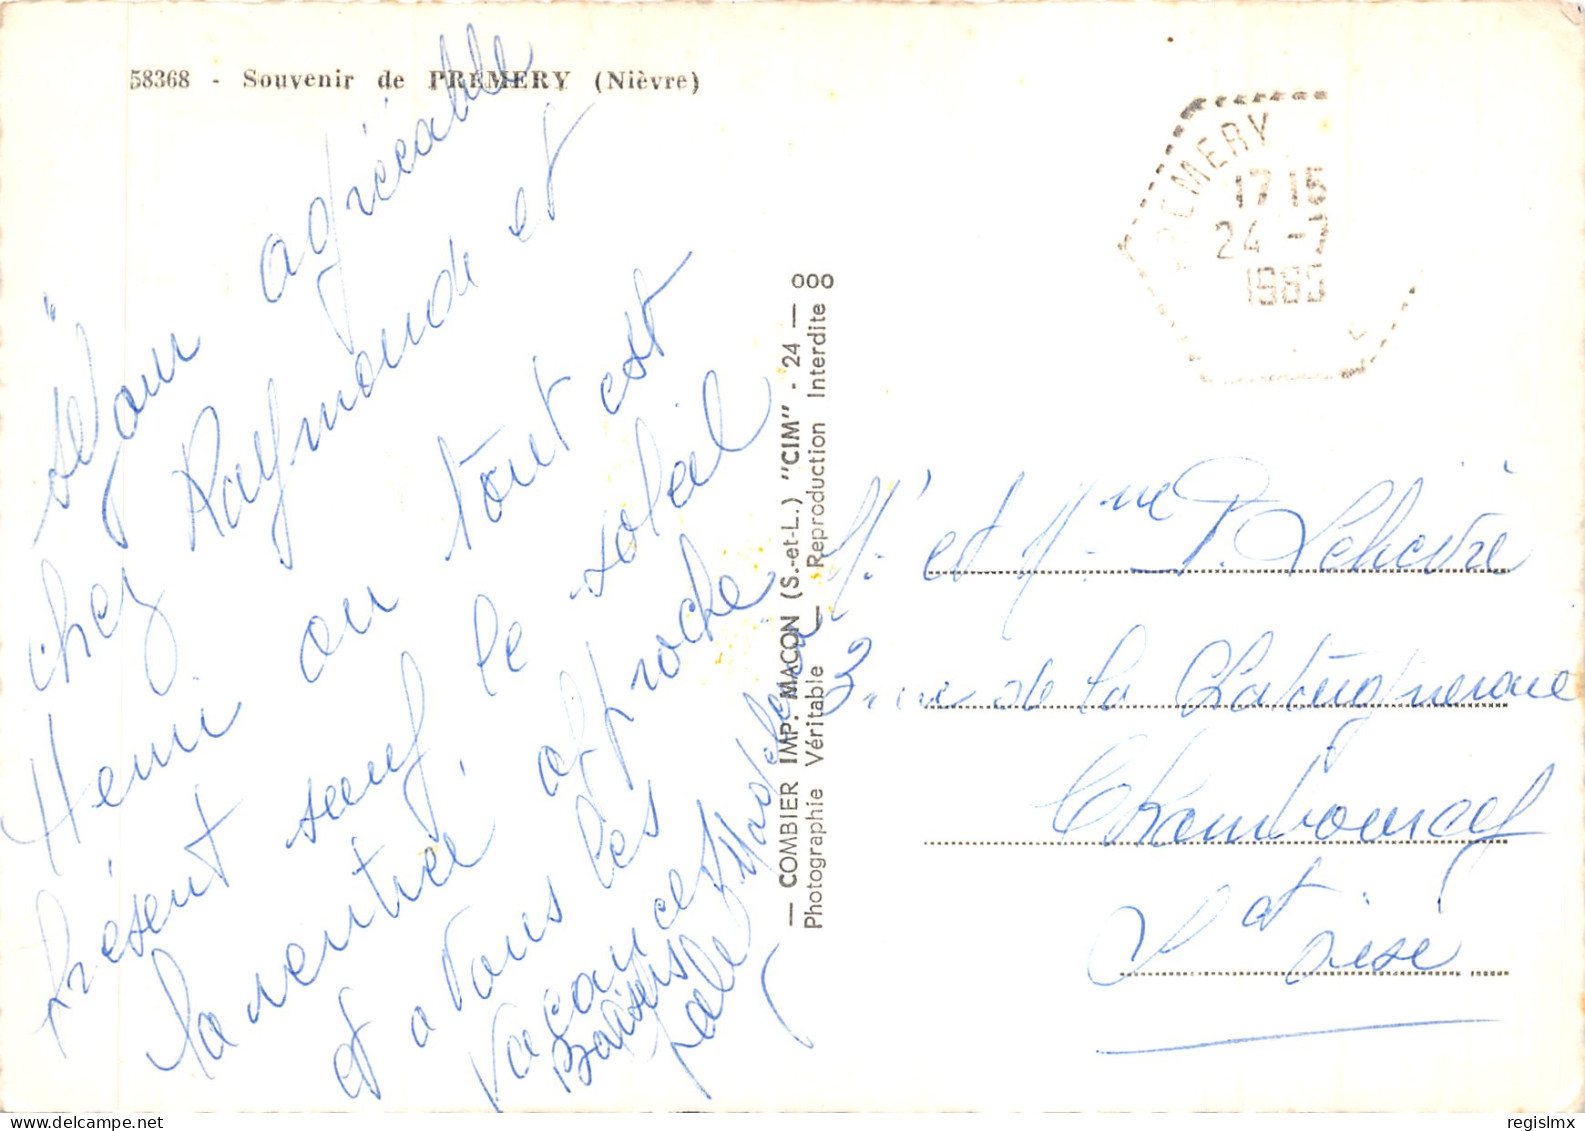 58368 - Souvenir de PRÉMERY (Nièvre)
séjour agréable
chez Raymonde et
Henri où tout est
présent sauf le soleil
la rentrée approche
et à vous les
vacances Madeleine
Baisers
PREMERY
17 15
24 -
COMBIER IMP. MACON (S.-et-L.) "CIM" - 24 - 000
Photographie Véritable - Reproduction Interdite
M. et Mme P. Lelièvre
3 rue de la
Chambourcy
S et Oise
regislmx